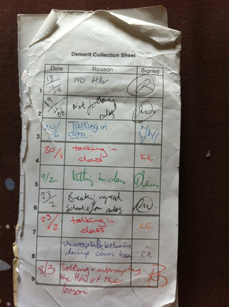 Demerit Collection Sheet
Date Reason Signed
1 18/1 NO H/W
2 19/1/06 Not following rules
3 Talking in
4 30/1 talking in
class KE
5 9/2
6 23/2 Breaking agreed
school uniform rules
7 23/2 talking in
class KE
8 Unacceptable behaviour
during cover lesson CR
9 8/3 talking + interrupting
the flow of the
lesson